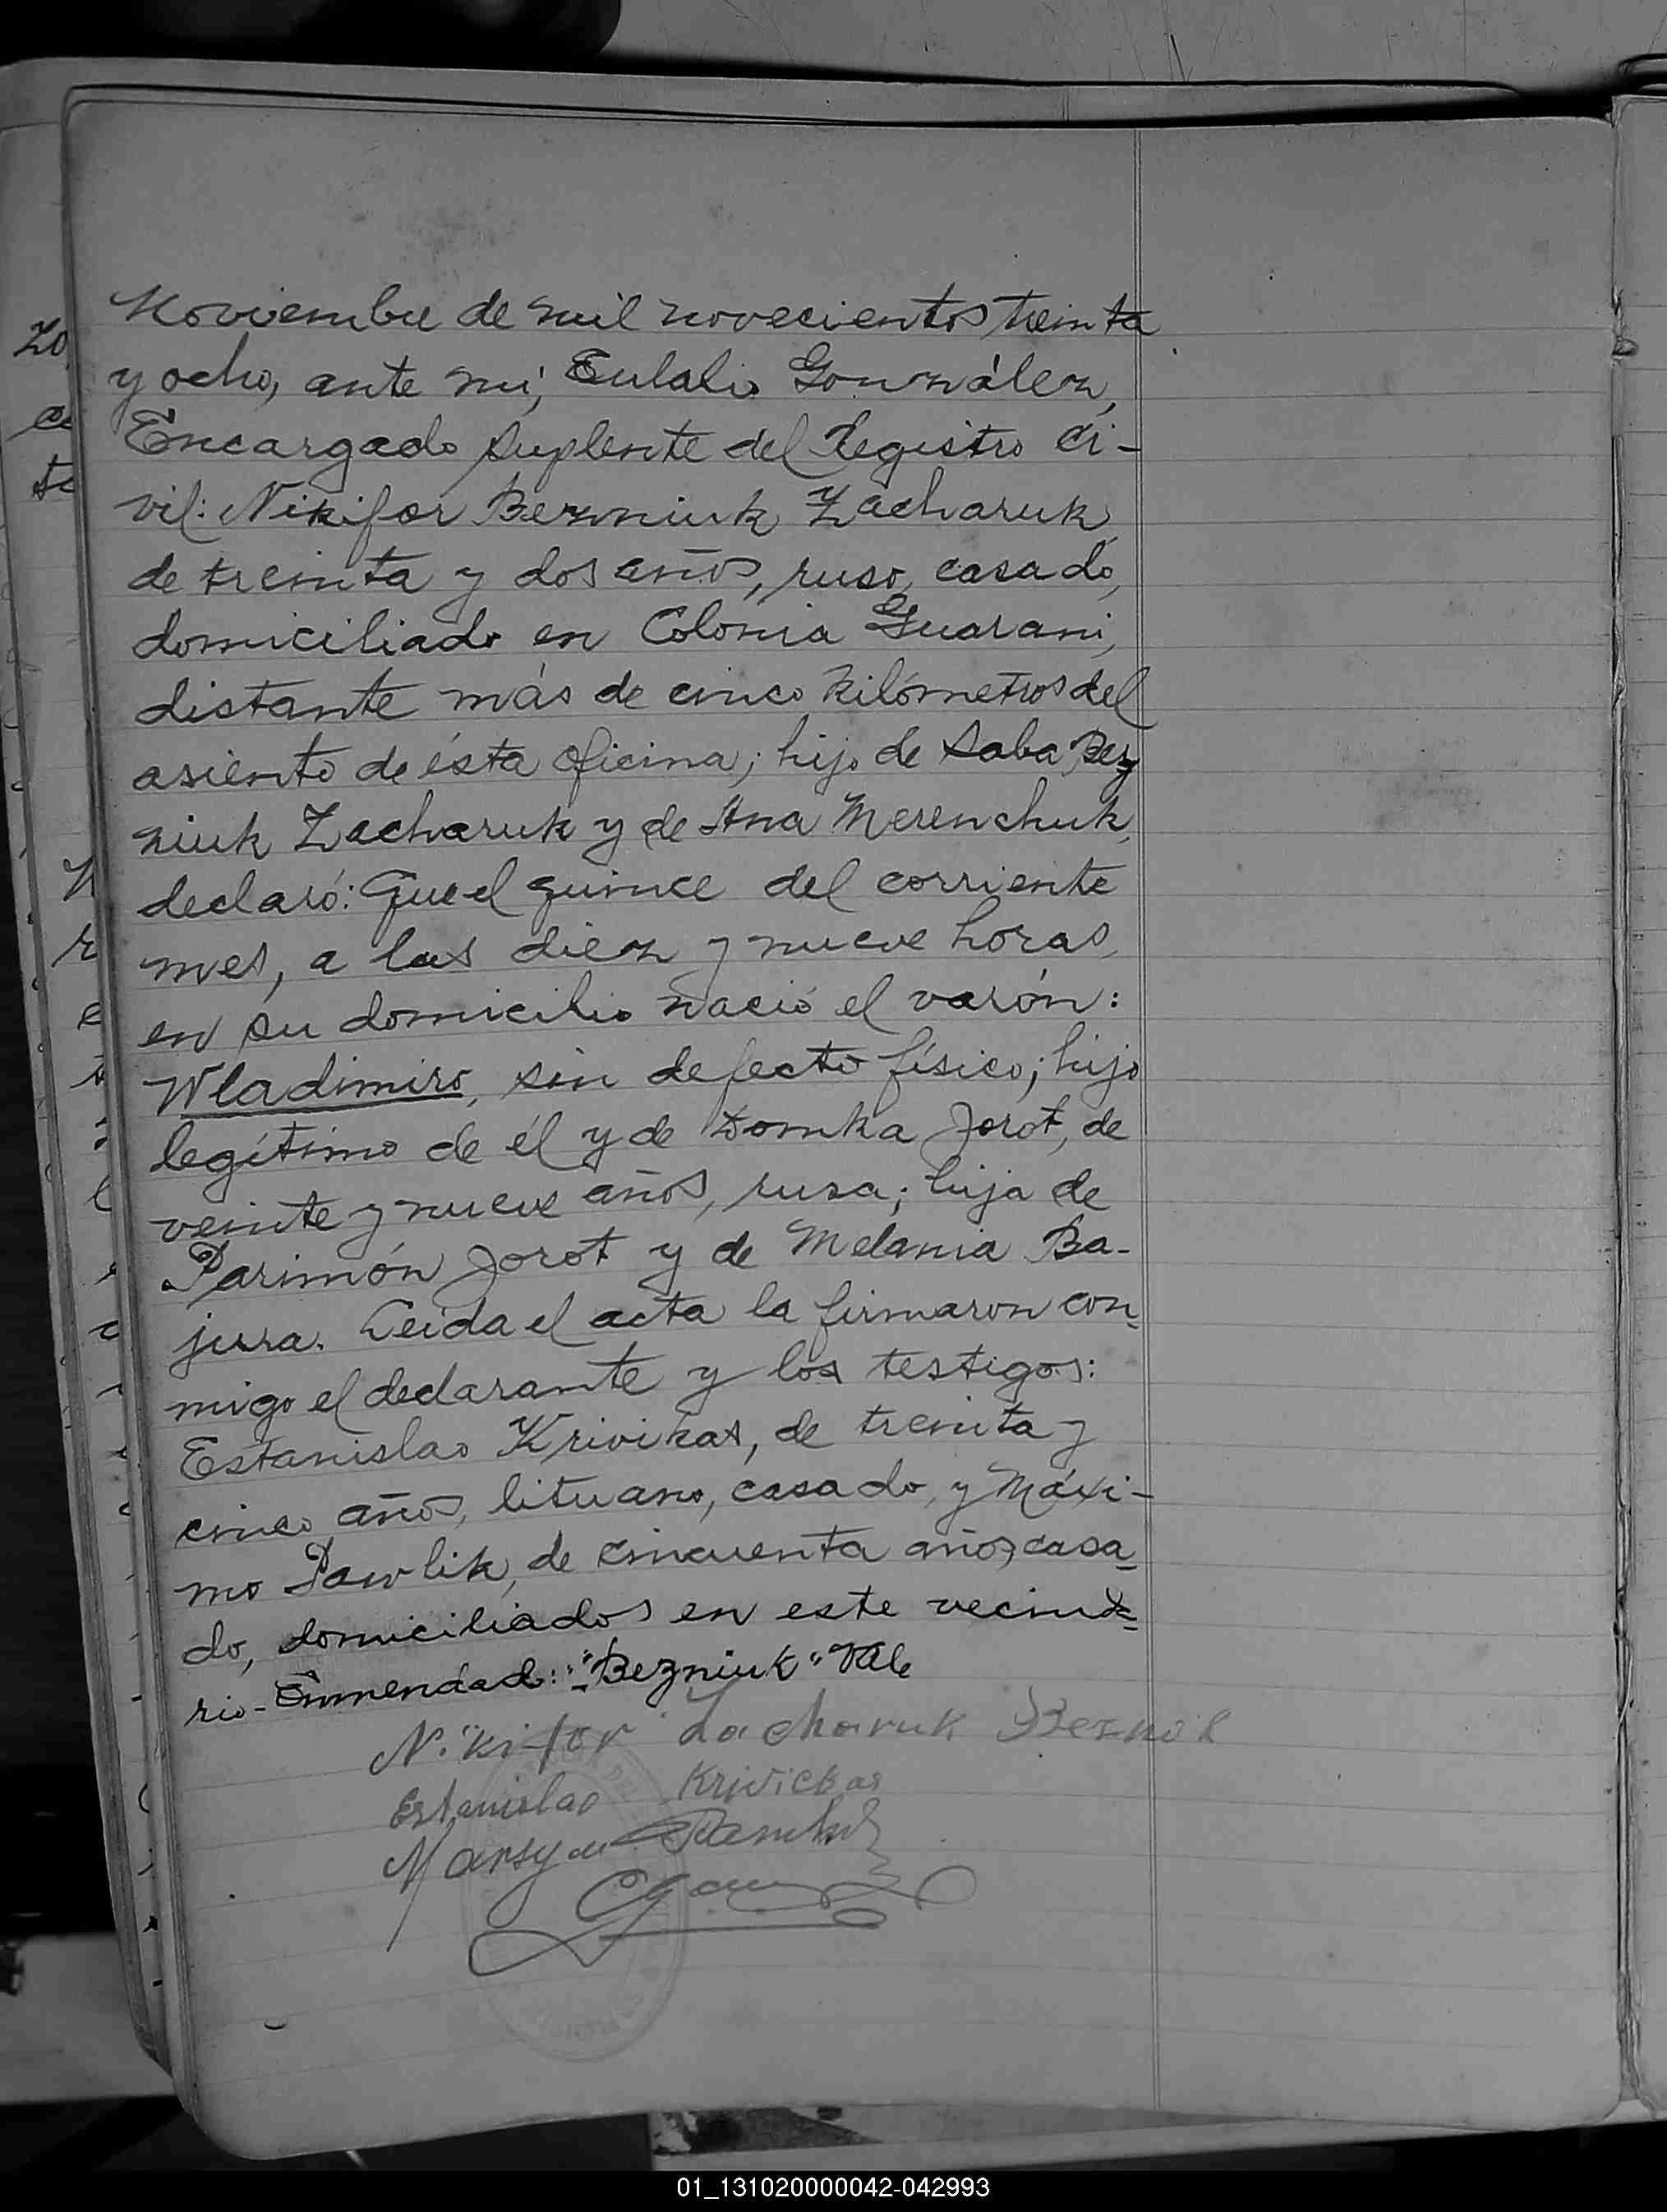 Noviembre de mil novecientos treinta
y ocho, ante mí, Eulalio González,
Encargado Suplente del Registro Ci-
vil: Nikifor Bezniuk Zacharuk,
de treinta y dos años, ruso, casado,
domiciliado en Colonia Guarani,
distante más de cinco kilómetros del
asiento de ésta oficina; hijo de Saba Bez
niuk Zacharuk y de Ana Merenchuk,
declaró: Que el quince del corriente
mes, a las diez y nueve horas,
en su domicilio nació el varón:
Wladimiro, sin defecto físico; hijo
legítimo de él y de Domka Jorot, de
veinte y nueve años, rusa; hija de
Parimón Jorot y de Melania Ba-
jura. Leida el acta la firmaron con-
migo el declarante y los testigos:
Estanislao Krivikas, de treinta y
cinco años, lituano, casado, y Máxi-
mo Pawlik, de cincuenta años, casa-
do, domiciliados en este vecinda-
rio - Enmendado: "Bezniuk" Vale
Nikifor Zacharuk
Estanislao Krivickas
01_131020000042-042993